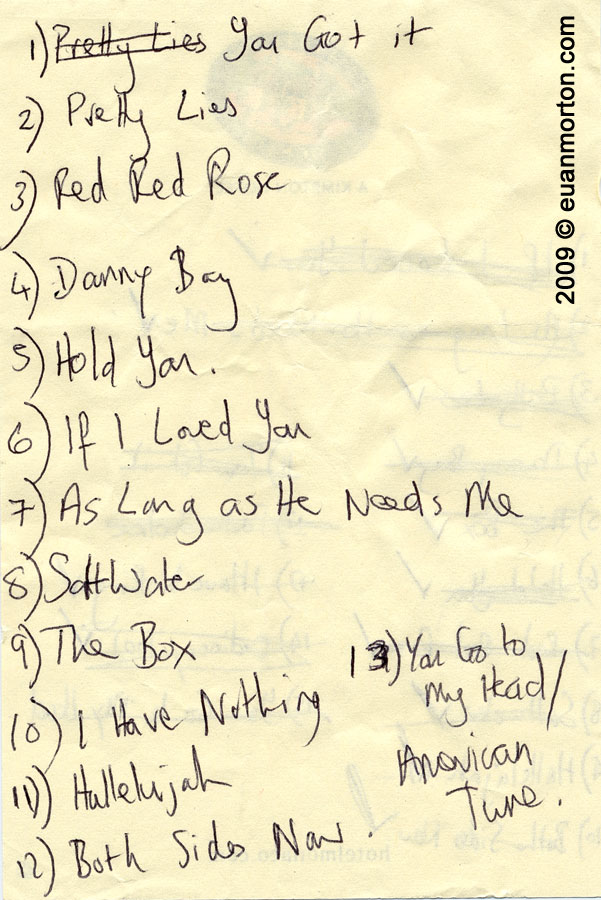 1) Pretty Lies You Got it
2) Pretty Lies
3) Red Red Rose
4) Danny Boy
5) Hold You.
6) If I Loved You
7) As Long as He Needs Me
8) Saltwater
9) The Box
10) I Have Nothing
11) Hallelujah
12) Both Sides Now.
13) You Go to
My Head/
American
Tune.
2009 © euanmorton.com